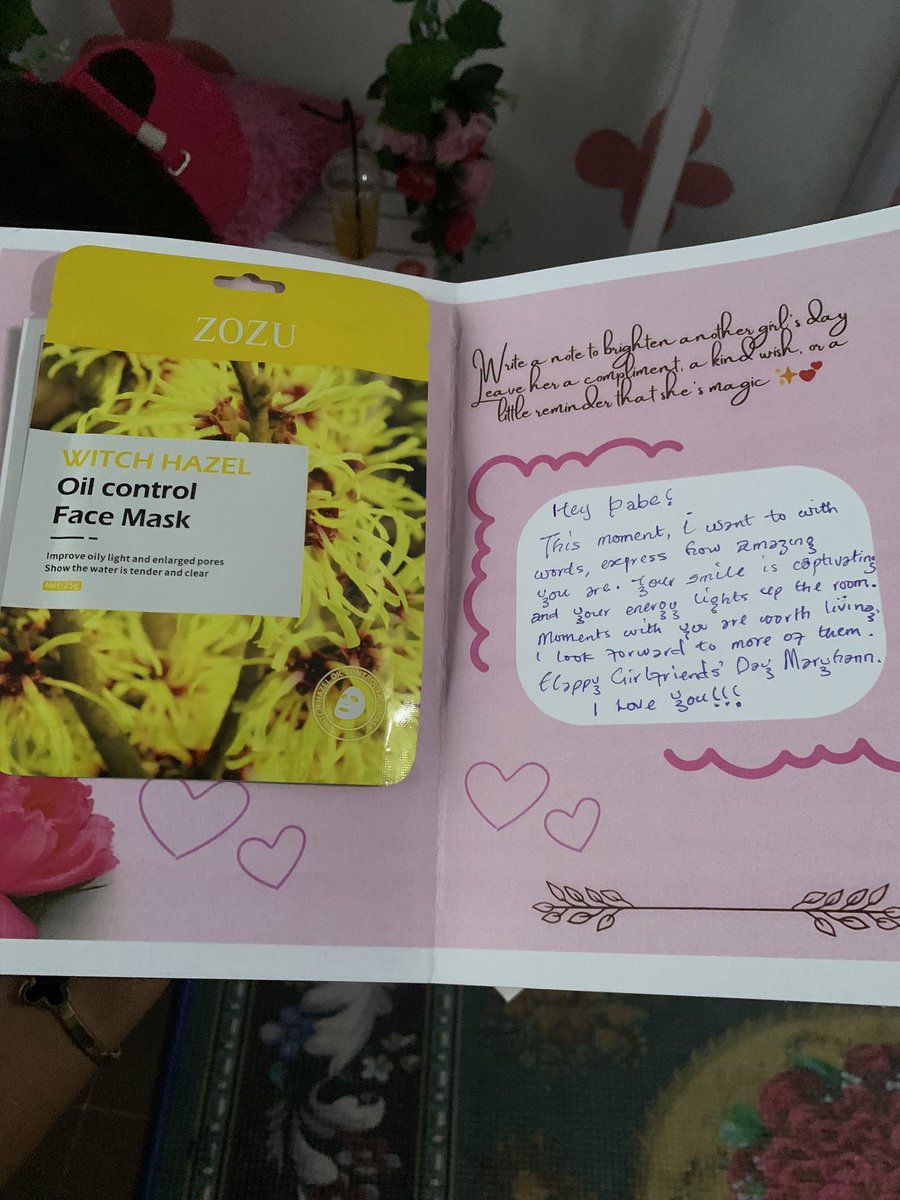 ZOZU
WITCH HAZEL
Oil control
Face Mask
Improve oily light and enlarged pores
Show the water is tender and clear
Net:25g
Write a note to brighten another girl's day
Leave her a compliment, a kind wish, or a
little reminder that she's magic ✨💕
Hey babe!
This moment, i want to with
words, express how amazing
you are. Your smile is captivating
and your energy lights up the room.
Moments with you are worth living,
i look forward to more of them.
Happy Girlfriends' Day Maryhann.
I Love you!!!